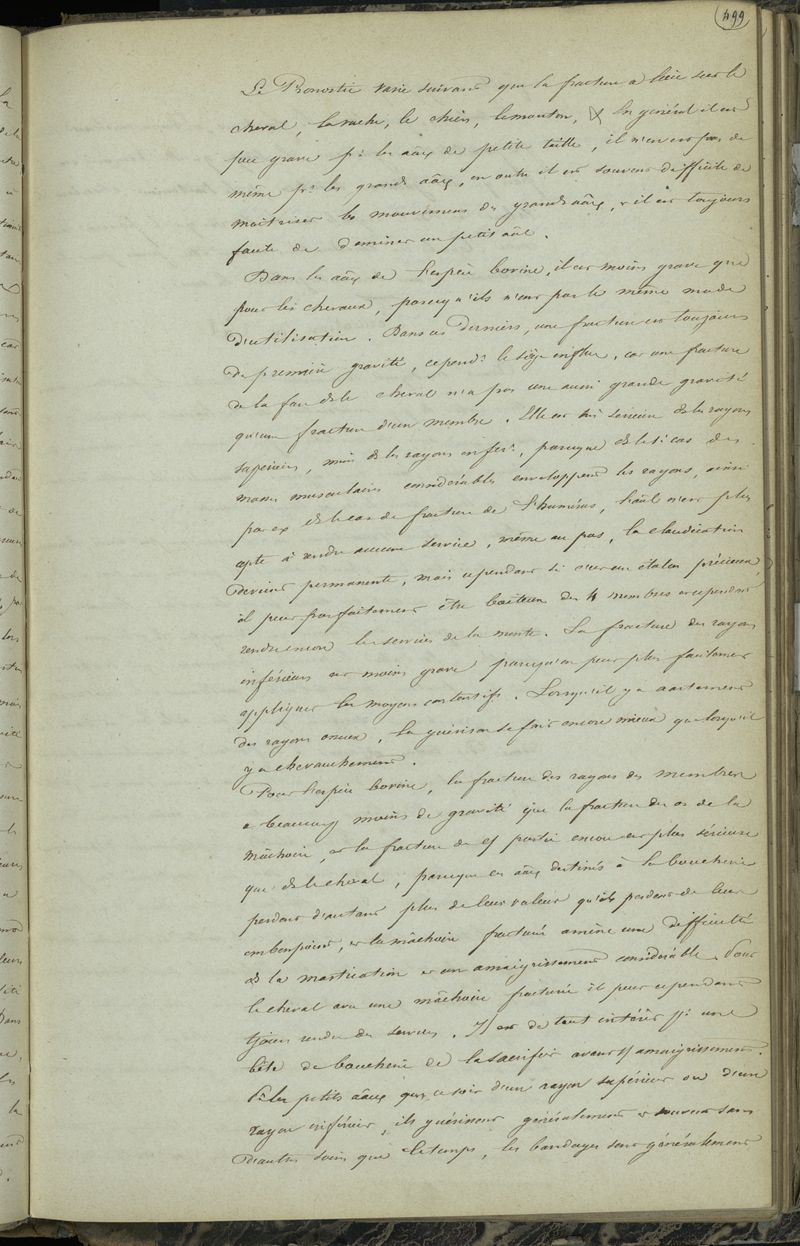 499
Le Pronostic varie suivant que la fracture a lieu sur le
cheval, la vache, le chien, le mouton, & En général il est
peu grave pr les aaux de petite taille, il n'en est pas de
même pr les grands aaux, en outre il est souvent difficile de
maîtriser les mouvemens des grands aaux, & il est toujours
facile de dominer un petit aal.
Dans les aaux de l'espèce bovine, il est moins grave que
pour les chevaux, parcequ'ils n'ont pas le même mode
d'utilisation. Dans ces derniers, une fracture est toujours
de première gravité, cependt le siège influe, car une fracture
de la face ds le cheval n'a pas une aussi grande gravité
qu'une fracture d'un membre. Elle est très sérieuse ds les rayons
supérieurs, moins ds les rayons inférs, parceque ds le 1er cas des
masses musculaires considérables enveloppent les rayons, ainsi
par ex ds le cas de fracture de l'humérus, l'aal n'est plus
apte à rendre aucun service, même au pas, la claudication
devient permanente, mais cependant si c'est un étalon précieux,
il peut parfaitement être boiteux des 4 membres et cependant
rendre encore les services de la monte. La fracture des rayons
inférieurs est moins grave parcequ'on peut plus facilement
appliquer les moyens contentifs. Lorsqu'il y a écartement
des rayons osseux, la guérison se fait encore mieux que lorsqu'il
y a chevauchement.
Pour l'espèce bovine, la fracture des rayons des membres
a beaucoup moins de gravité que la fracture des os de la
mâchoire, et la fracture de cette partie encore est plus sérieuse
que ds le cheval, parceque ces aaux destinés à la boucherie
perdent d'autant plus de leur valeur qu'ils perdent de leur
embonpoint, et la mâchoire fracturée amène une difficulté
ds la mastication et un amaigrissement considérable. Pour
le cheval avec une mâchoire fracturée il peut cependant
tjours rendre des services. Il est de tout intérêt pr une
bête de boucherie de la sacrifier avant l'amaigrissement.
Ds les petits aaux que ce soit d'un rayon supérieur ou d'un
rayon inférieur, ils guérissent généralement & souvent sans
d'autres soins que le temps, les bandages sont généralement